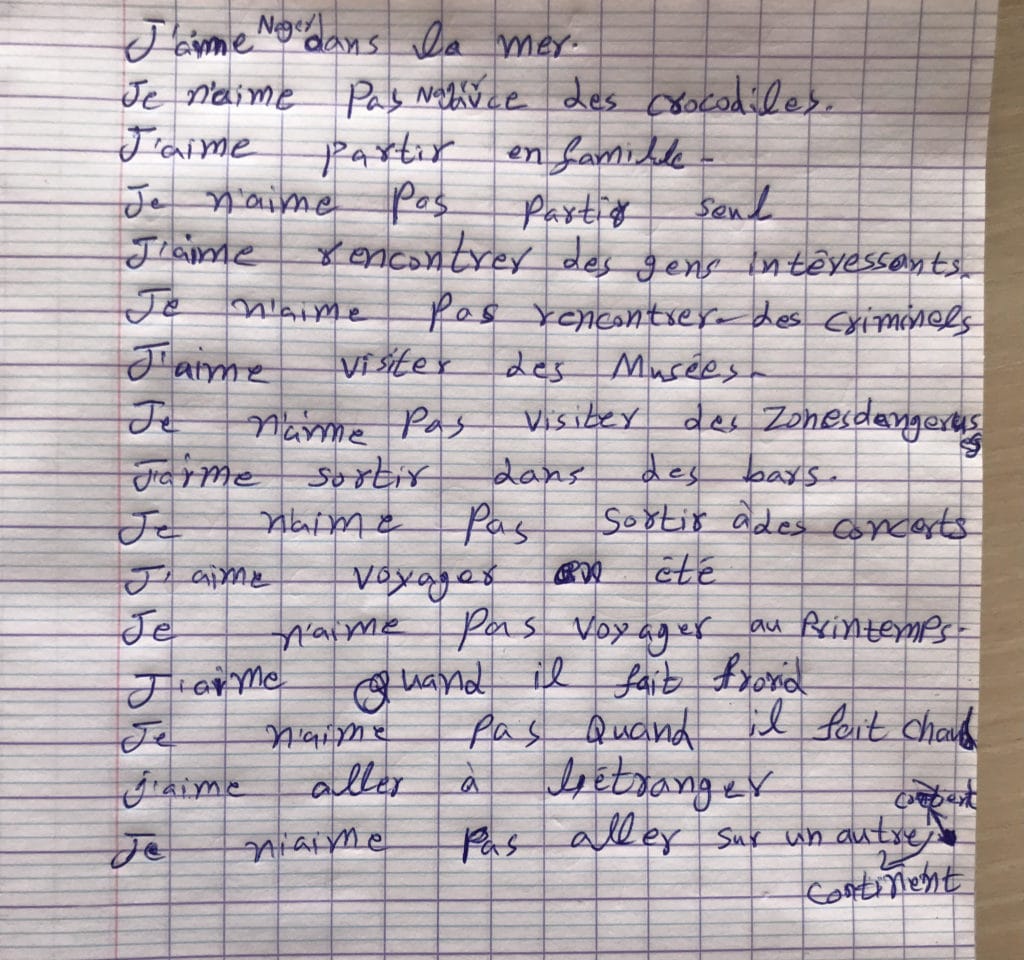 J'aime Nager dans la mer.
Je n'aime pas des crocodiles.
J'aime partir en famille -
Je n'aime pas partir seul
J'aime rencontrer des gens intéressants.
Je n'aime pas rencontrer des criminels
J'aime visiter des Musées -
Je n'aime pas visiter des Zones dangerus
J'aime sortir dans des bars.
Je n'aime pas sortir à des concerts
J'aime voyager en été
Je n'aime pas voyager au Printemps.
J'aime quand il fait froid
Je n'aime pas Quand il fait chaud
J'aime aller à l'étranger
Je n'aime pas aller sur un autre
continent